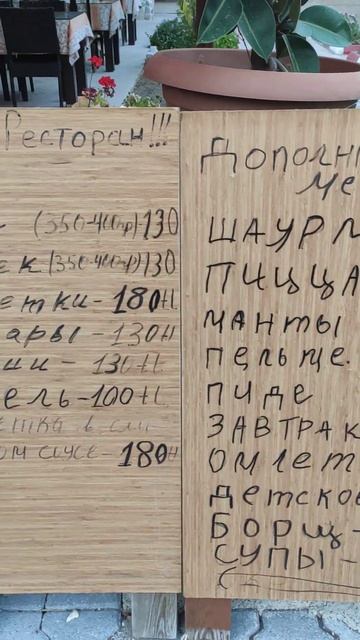 Ресторан!!!
(350-400гр)-130
ек (350-400гр)130
етки-180tl
ары-130tl
ии-130tl
ель-100tl
ом соусе-180tl
Дополн
ме
ШАУРМ
ПИЦЦА
манты
пельме
пиде
ЗАВТРАК
омлет
детское
Борщ-
СУПЫ-